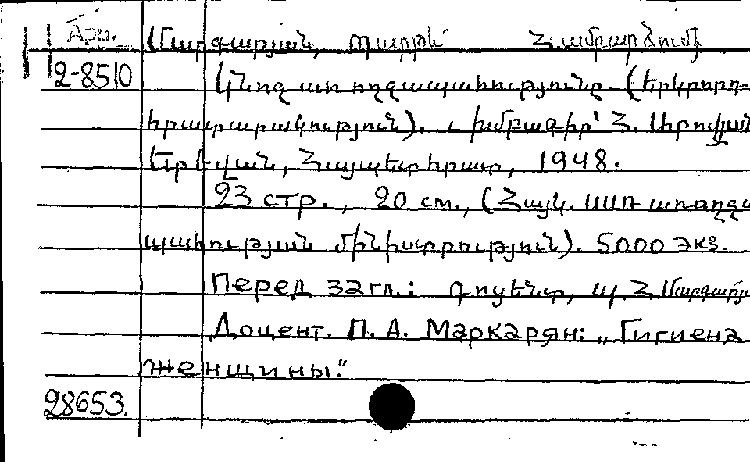 Арм. Մարգարյան, Համբարձումի
2-8510 Կնոջ առողջապահությունը (Երկրորդ
հրատարակություն). Խմբագիր՝ Հ.
Երևան, Հայպետհրատ, 1948.
23 стр., 20 см., (Հայկ. ՍՍՌ առողջա
պահության մինիստրություն). 5000 экз.
Перед загл.: դոցենտ, Պ. Հ. Մարգարյ
Доцент. П. А. Маркарян: „Гигиена
женщины.“
28653.